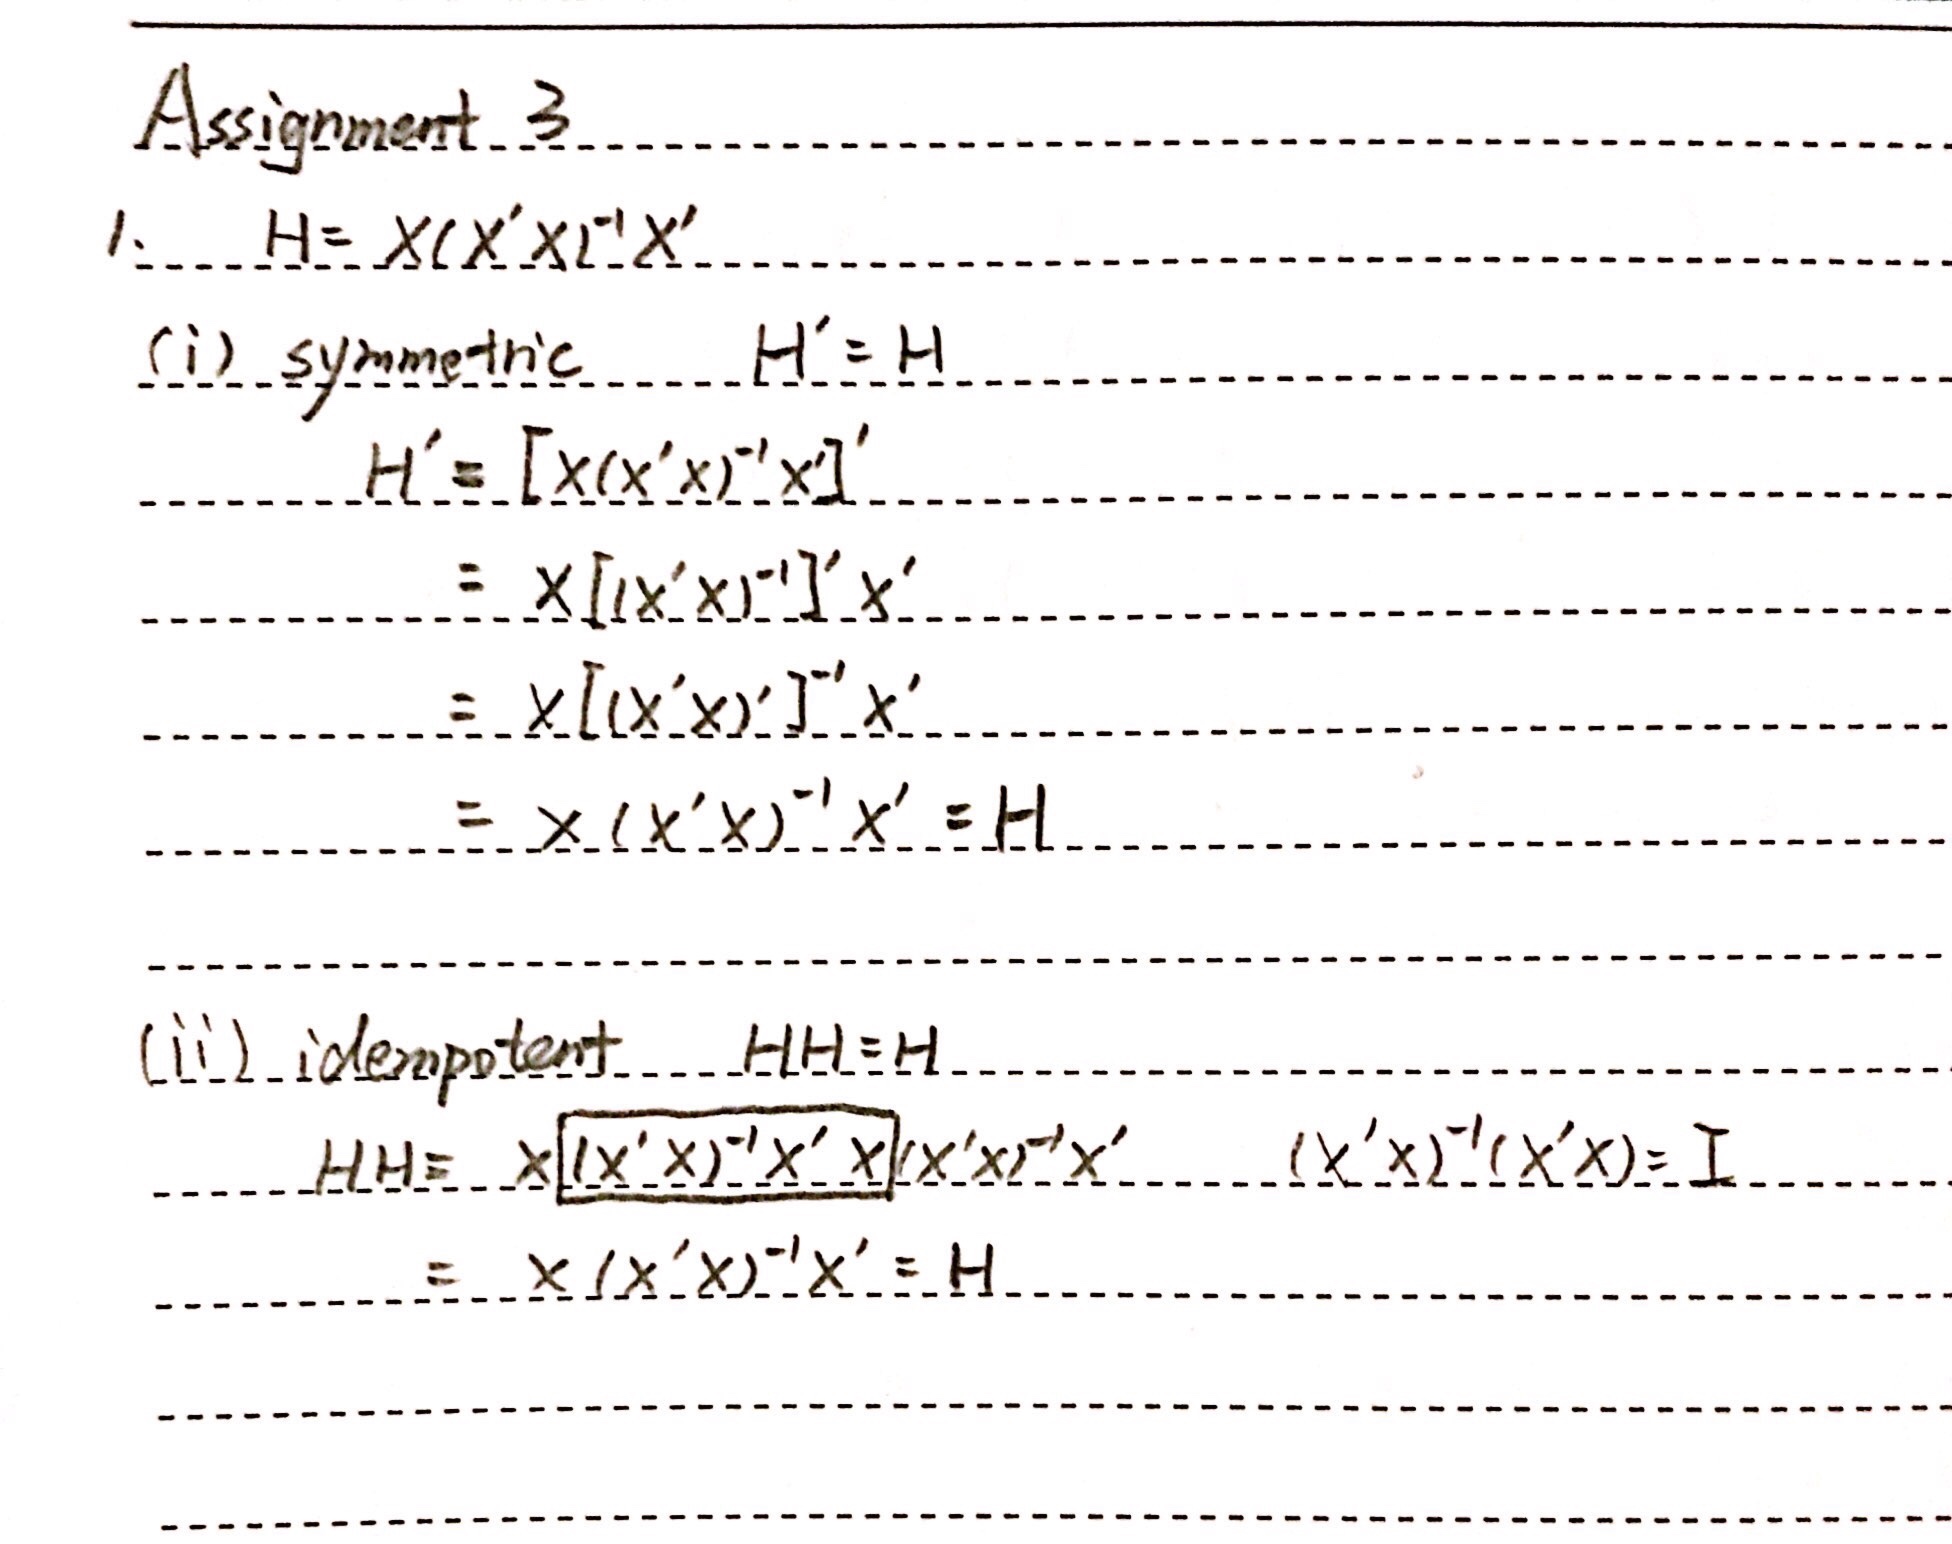 Assignment 3
1. H = X(X'X)⁻¹X'
(i) symmetric H' = H
H' = [X(X'X)⁻¹X']'
= X[(X'X)⁻¹]'X'
= X[(X'X)']⁻¹X'
= X(X'X)⁻¹X' = H
(ii) idempotent HH = H
HH = X(X'X)⁻¹X'X(X'X)⁻¹X' (X'X)⁻¹(X'X) = I
= X(X'X)⁻¹X' = H